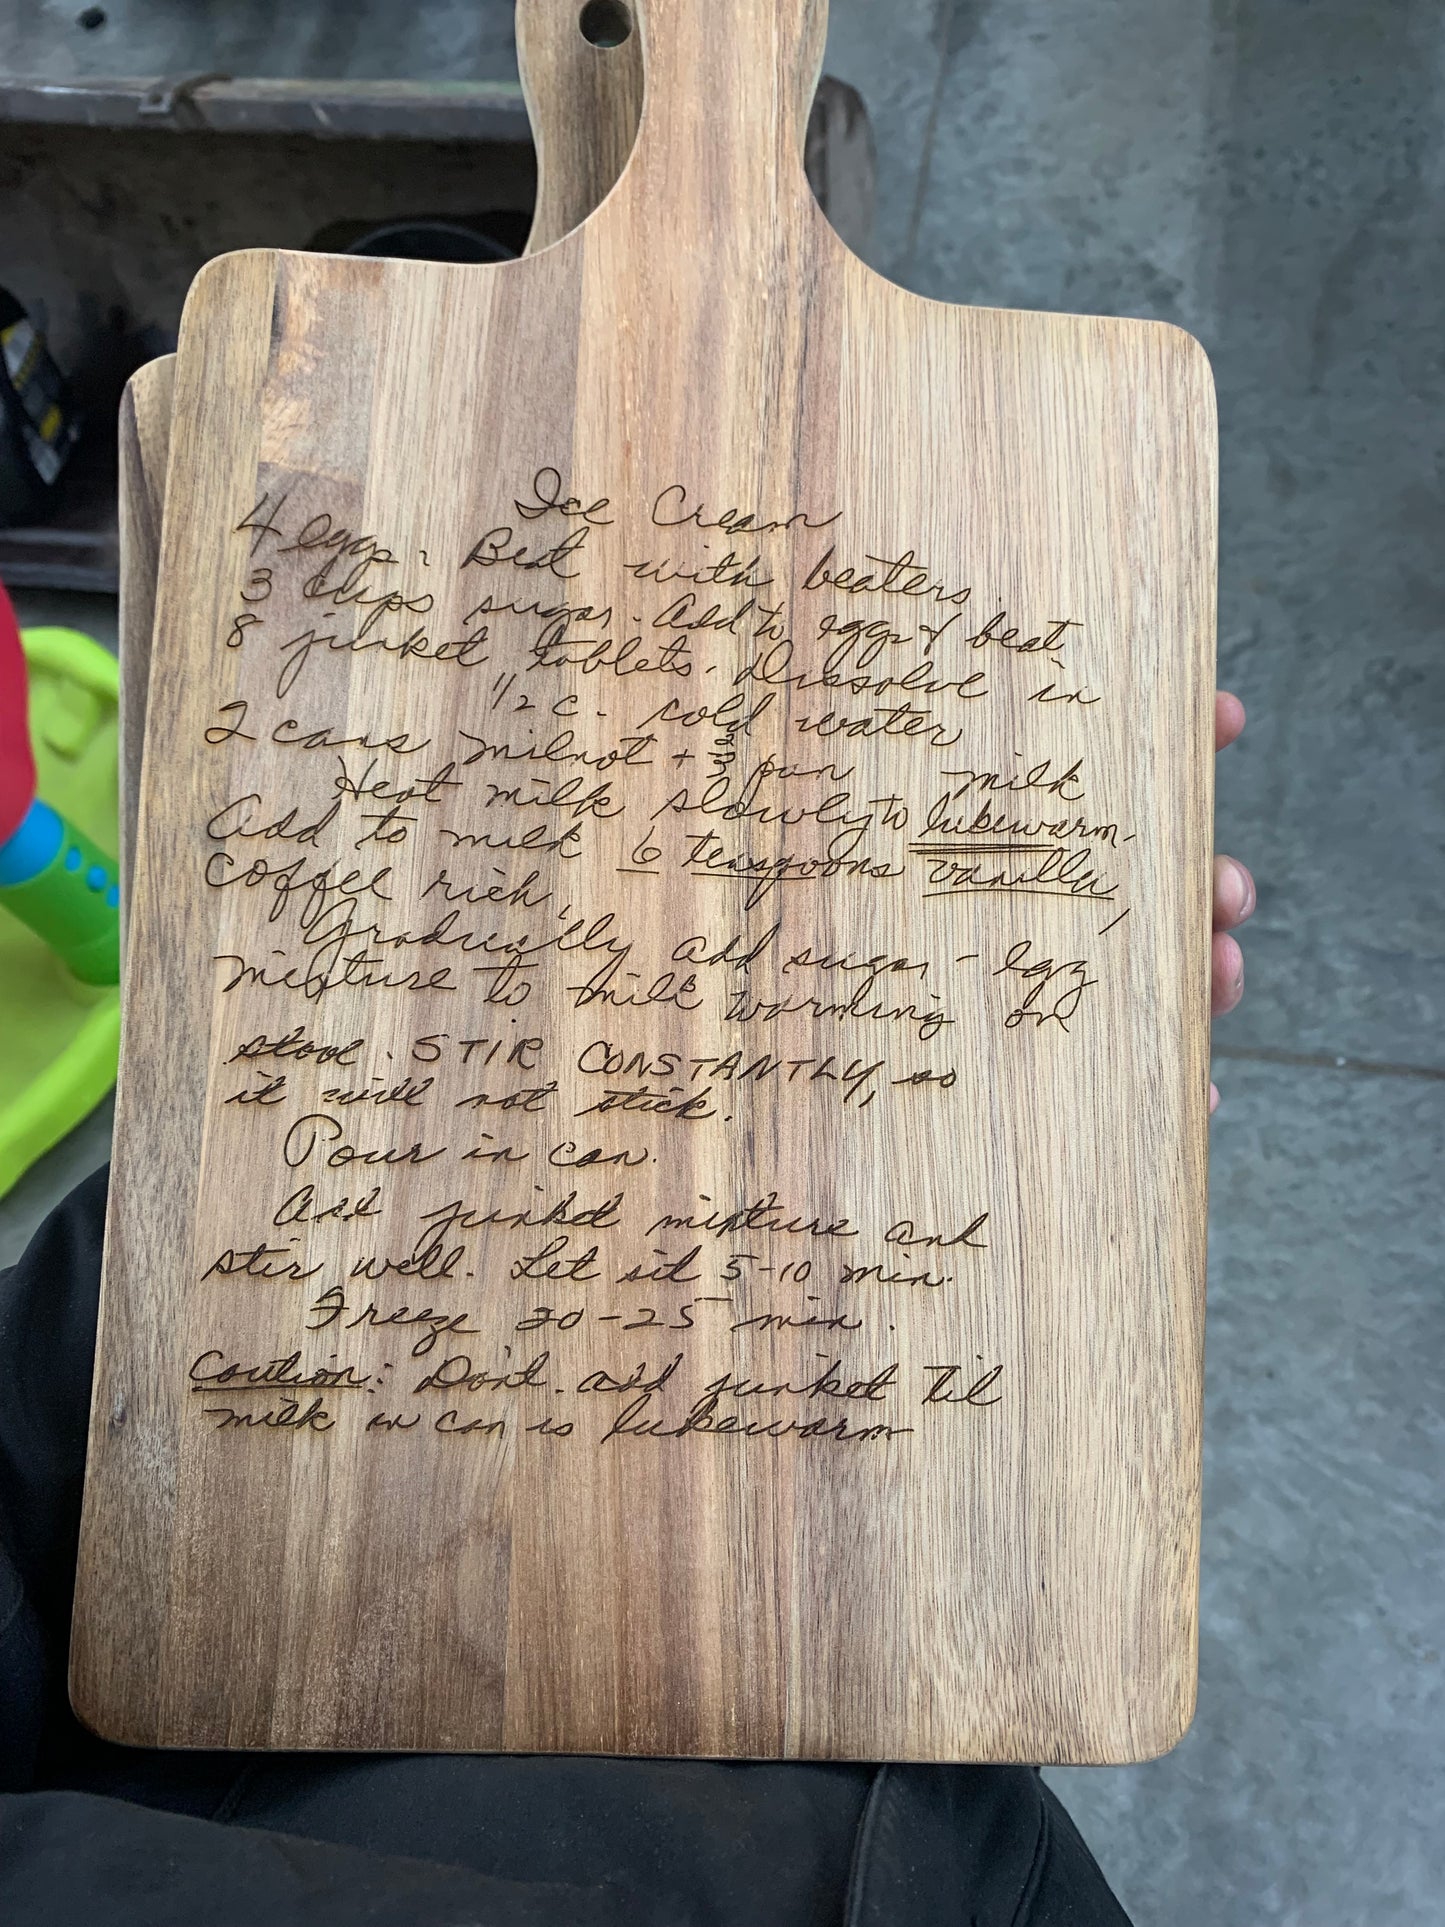 Ice Cream
4 eggs. Beat with beaters.
3 cups sugar. Add to eggs & beat
8 junket tablets. Dissolve in
1/2 c. cold water
2 cans milnot + 2/3 pan milk
Heat milk slowly to lukewarm.
Add to milk 6 teaspoons vanilla,
coffee rich,
Gradually add sugar - egg
mixture to milk warming on
stove. STIR CONSTANTLY, so
it will not stick.
Pour in can.
Add junket mixture and
stir well. Let sit 5-10 min.
Freeze 20-25 min.
Caution: Don't add junket til
milk in can is lukewarm